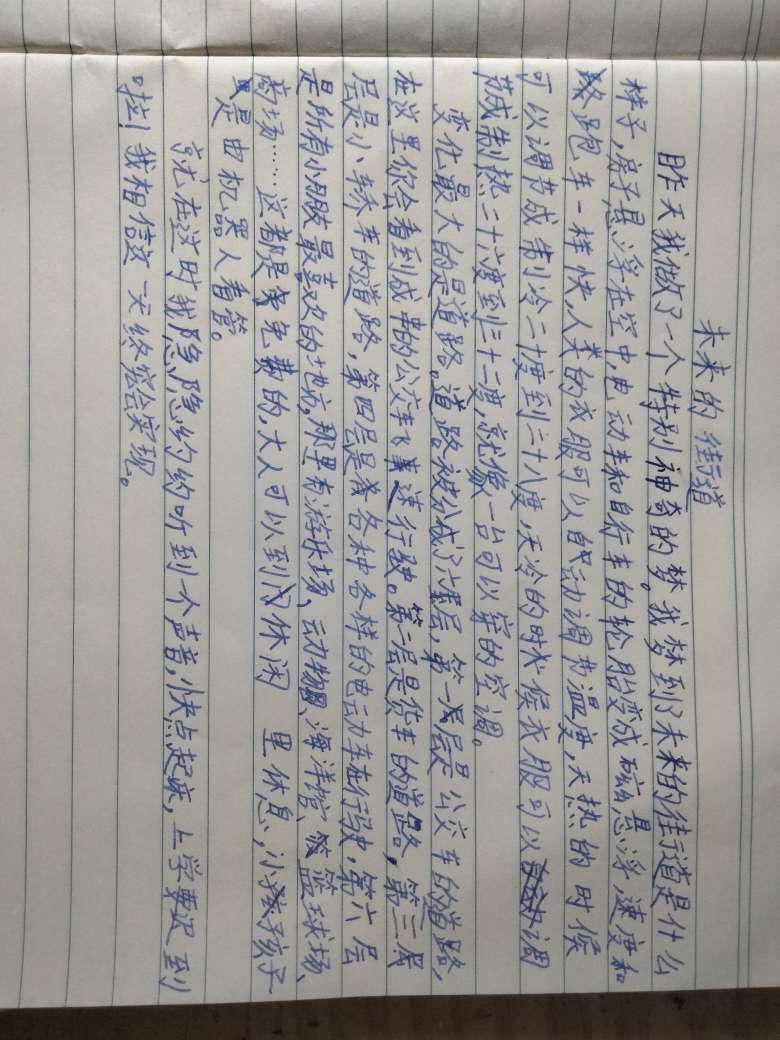 未来的街道
昨天我做了一个特别神奇的梦。我梦到了未来的街道是什么
样子,房子悬浮在空中,电动车和自行车的轮胎变成磁悬浮,速度和
跑车一样快,人类的衣服可以自动调节温度,天热的时候
可以调节成制冷二十度到二十八度,天冷的时候衣服可以调
节成制热二十六度到三十二度,就像一台可以穿的空调。
变化最大的是道路,道路被分成了六层,第一层是公交车的道路,
在这里你会看到成的公交车飞速行驶。第二层是货车的道路,第三层
层是小轿车的道路,第四层是各种各样的电动车在行驶,第六层
是所有小朋友最喜欢的地方,那里有游乐场、动物园、海洋馆、篮球场、
商场……这都是免费的,大人可以到休闲 里休息,小孩子
是由机器人看管。
就在这时我隐隐约约听到个声音,快点起床,上学要迟到
啦!我相信这一天终究会实现。